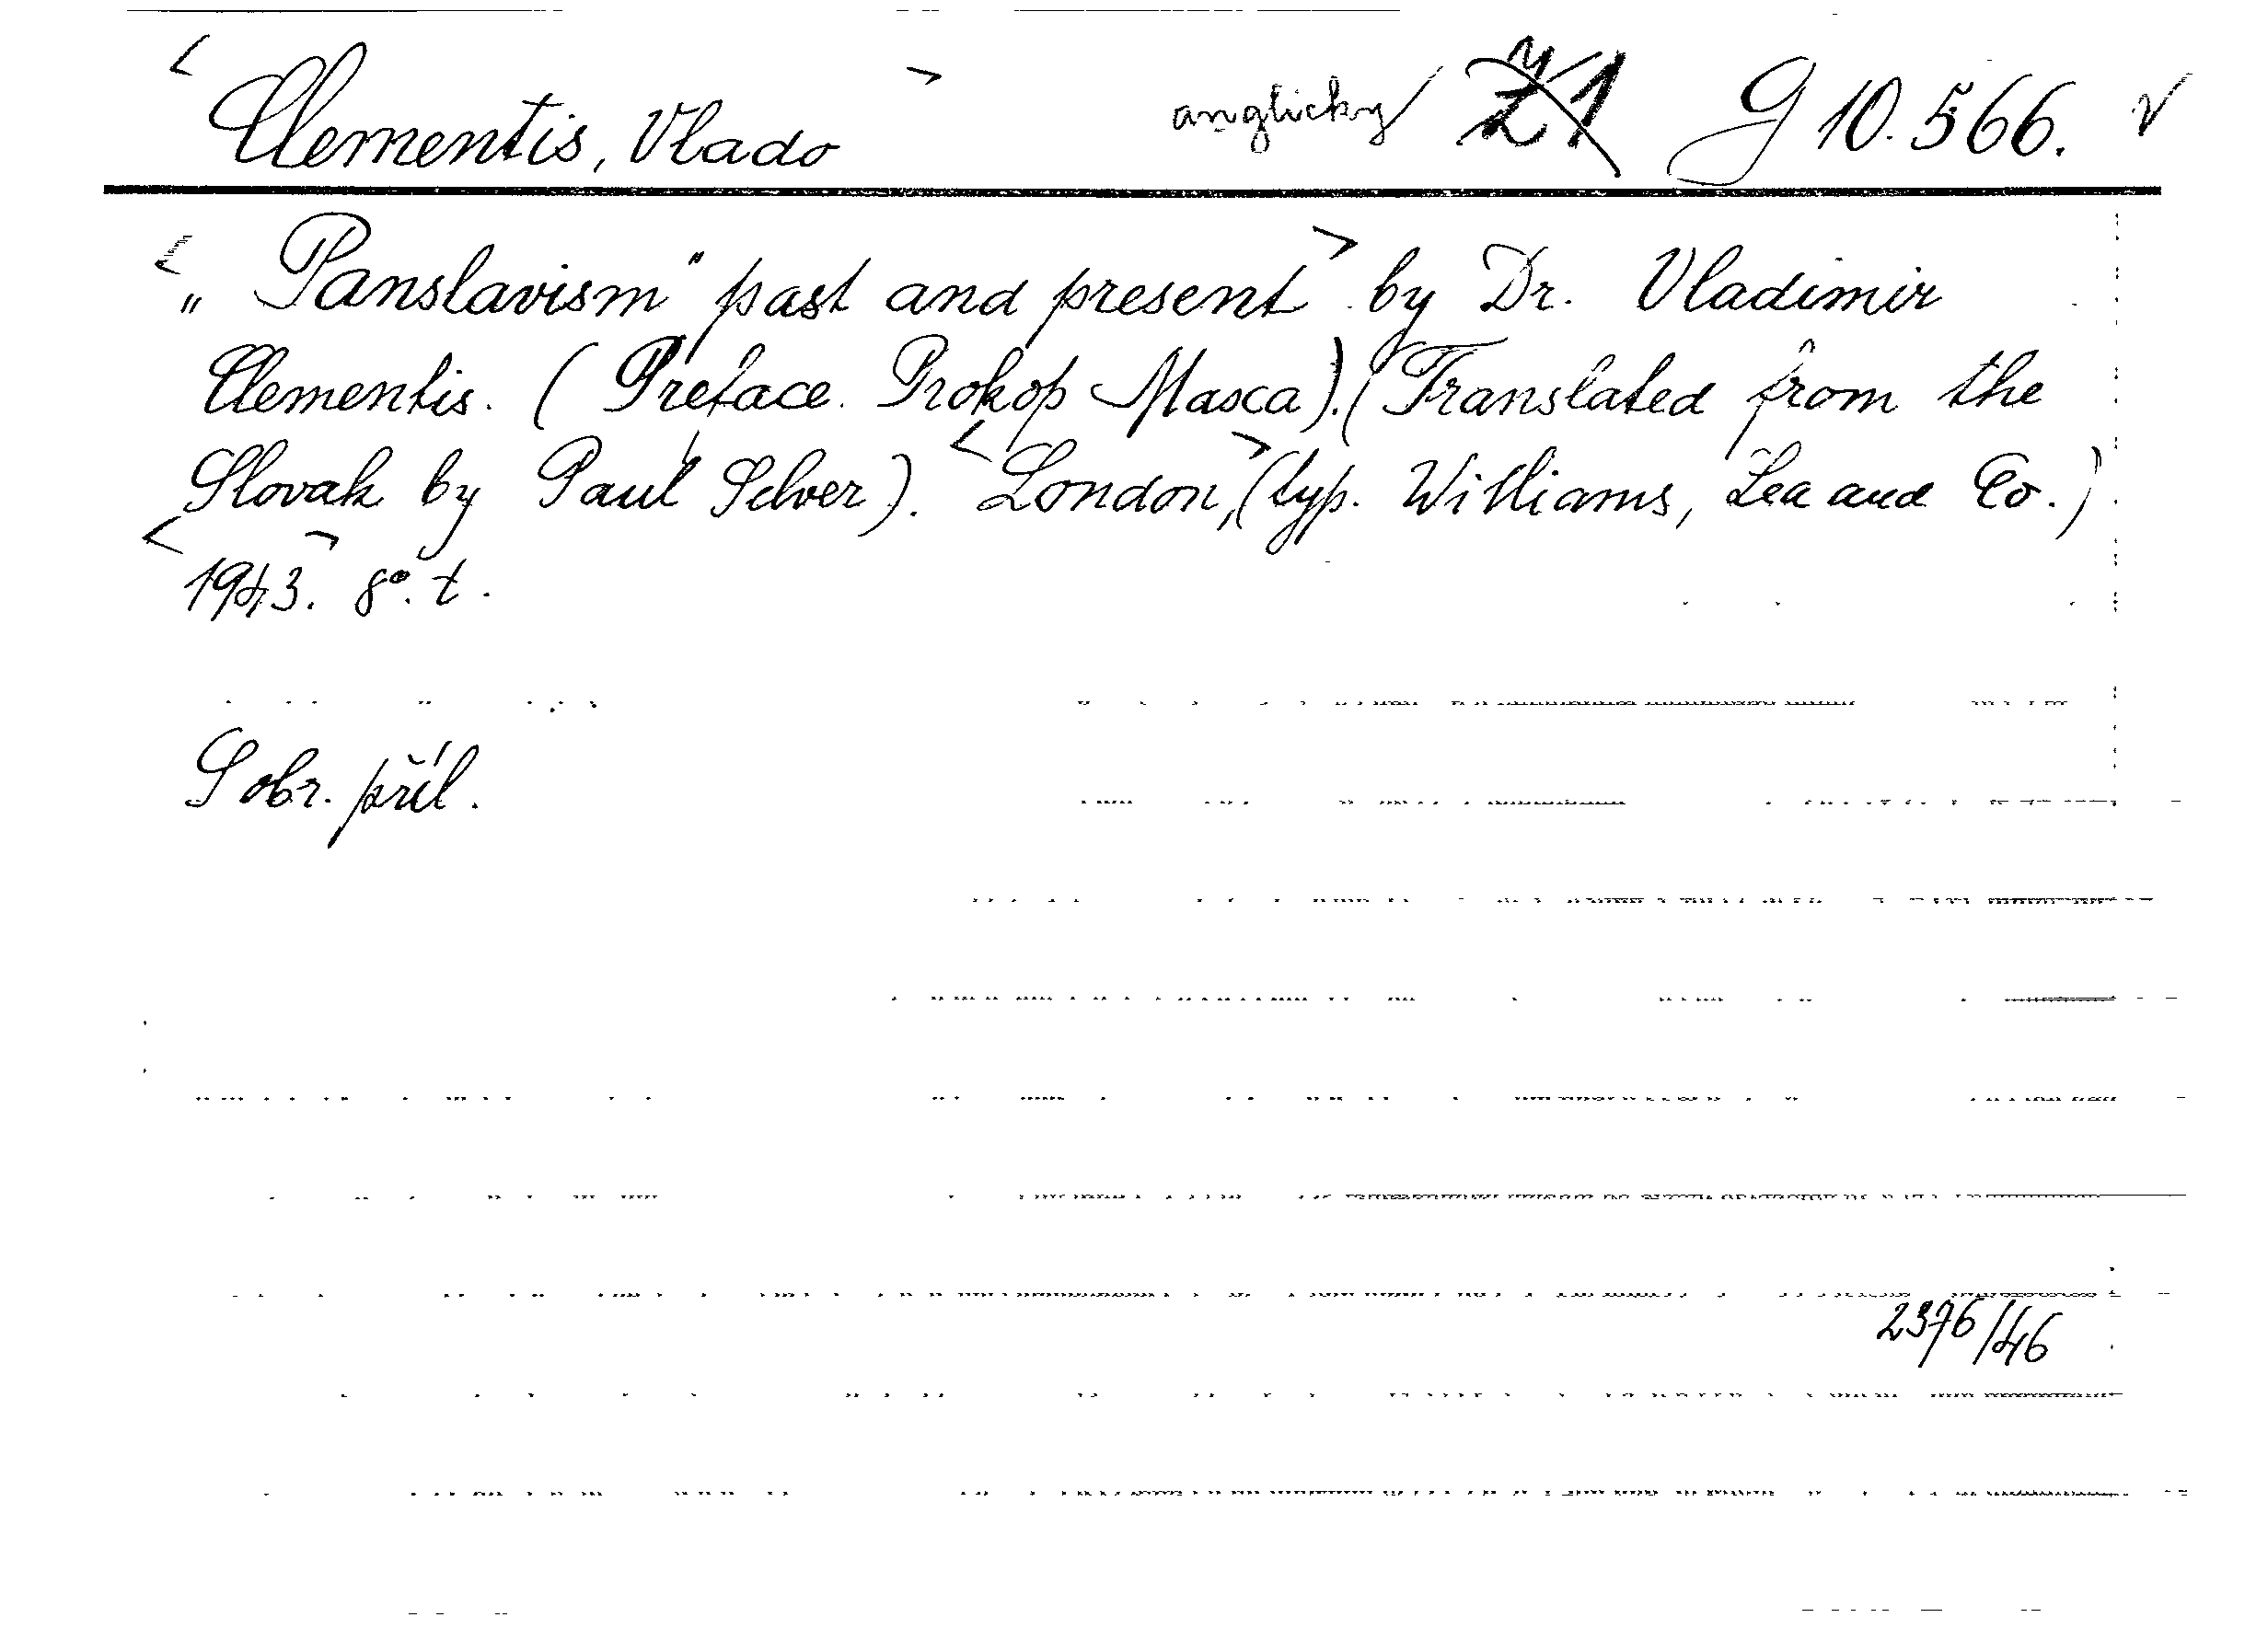 Clementis, Vlado anglicky Z1 G 10.566.
„Panslavism" past and present by Dr. Vladimir
Clementis. (Preface. Prokop Maxa).(Translated from the
Slovak by Paul Selver). London, (typ. Williams, Lea and Co.)
1943. 8°. t.
S obr. příl.
2376/46